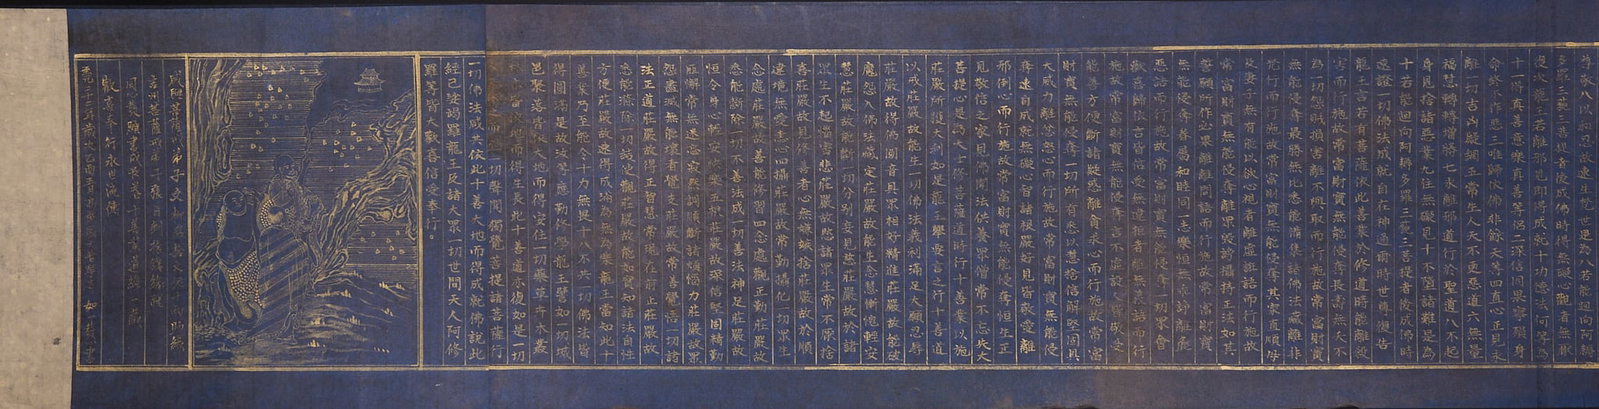 尊敬八以和忍故速生梵世是為八若能迴向阿耨
多羅三藐三菩提者後成佛時得無礙心觀者無厭
復次龍王若離邪見即得成就十功德法何等為
十一得真善意樂真善等侶二深信因果寧殞身
命終不作惡三唯歸依佛非餘天等四直心正見永
離一切吉凶疑網五常生人天不更惡道六無量
福慧轉轉增勝七永離邪道行於聖道八不起
身見捨諸惡業九住無礙見十不墮諸難是為
十若能迴向阿耨多羅三藐三菩提者後成佛時
速證一切佛法成就自在神通爾時世尊復告
龍王言若有菩薩依此善業於修道時能離殺
害而行施故常富財寶無能侵奪長壽無夭不
為一切怨賊損害離不與取而行施故常富財寶
無能侵奪最勝無比悉能備集諸佛法藏離非
梵行而行施故常富財寶無能侵奪其家直順母
及妻子無有能以欲心視者離虛誑語而行施故
常富財寶無能侵奪離眾毀謗攝持正法如其
誓願所作必果離離間語而行施故常富財寶
無能侵奪眷屬和睦同一志樂恒無乖諍離麤
惡語而行施故常富財寶無能侵奪一切眾會
歡喜歸依言皆信受無違拒者離無義語而行
施故常富財寶無能侵奪言不虛設人皆敬受
能善方便斷諸疑惑離貪求心而行施故常富
財寶無能侵奪一切所有悉以慧捨信解堅固具
大威力離忿怒心而行施故常富財寶無能侵
奪速自成就無礙心智諸根嚴好見皆敬愛離
邪倒心而行施故常富財寶無能侵奪恒生正
見敬信之家見佛聞法供養眾僧常不忘失大
菩提心是為大士修菩薩道時行十善業以施
莊嚴所獲大利如是龍王舉要言之行十善道
以戒莊嚴故能生一切佛法義利滿足大願忍辱
莊嚴故得佛圓音具眾相好精進莊嚴故能破
魔怨入佛法藏定莊嚴故能生念慧慚愧輕安
慧莊嚴故能斷一切分別妄見慈莊嚴故於諸
眾生不起惱害悲莊嚴故愍諸眾生常不厭捨
喜莊嚴故見修善者心無嫌嫉捨莊嚴故於順
違境無愛恚心四攝莊嚴故常勤攝化一切眾生
念處莊嚴故善能修習四念處觀正勤莊嚴故
悉能斷除一切不善法成一切善法神足莊嚴故
恒令身心輕安快樂五根莊嚴故深信堅固精勤
匪懈常無迷忘寂然調順斷諸煩惱力莊嚴故眾
怨盡滅無能壞者覺支莊嚴故常善覺悟一切諸
法正道莊嚴故得正智慧常現在前止莊嚴故
悉能滌除一切結使觀莊嚴故能如實知諸法自性
方便莊嚴故速得成滿為無為樂龍王當知此十
善業乃至能令十力無畏十八不共一切佛法皆
得圓滿是故汝等應勤修學龍王譬如一切城
邑聚落皆依大地而得安住一切藥草卉木叢
皆依地而得生長此十善道亦復如是一切
一切聲聞獨覺菩提諸菩薩行
一切佛法咸共依此十善大地而得成就佛說此
經已娑竭羅龍王及諸大眾一切世間天人阿修
羅等皆大歡喜信受奉行。